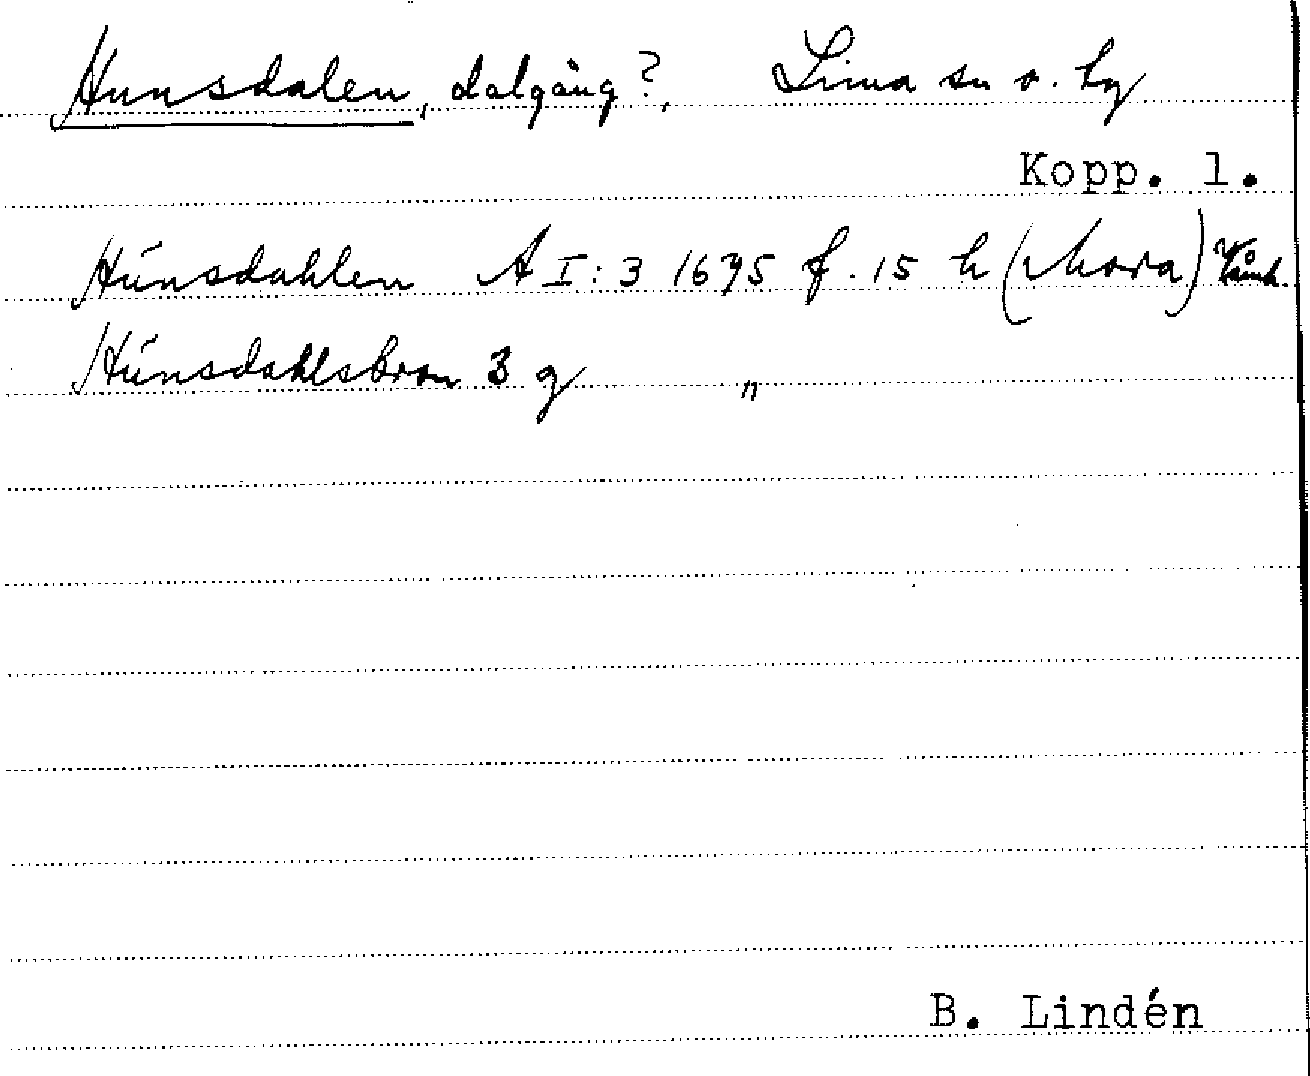 Hunsdalen, dalgång?, Lima sn o. hg
Kopp. l.
Húnsdahlen A I:3 1695 f. 15 h (Mora) Våmh.
Húnsdahlsbron 3 g "
B. Lindén